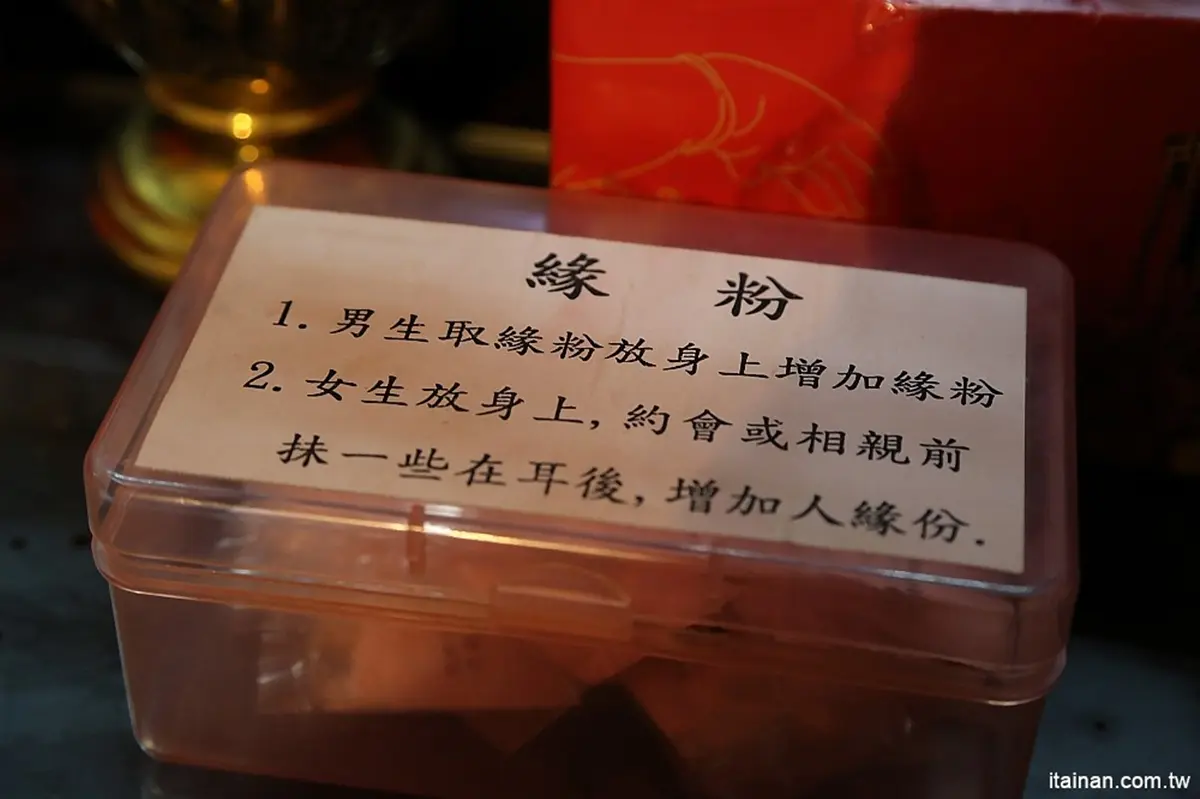 緣 粉
1. 男生取緣粉放身上增加緣粉
2. 女生放身上, 約會或相親前
抹一些在耳後, 增加人緣份.
itainan.com.tw